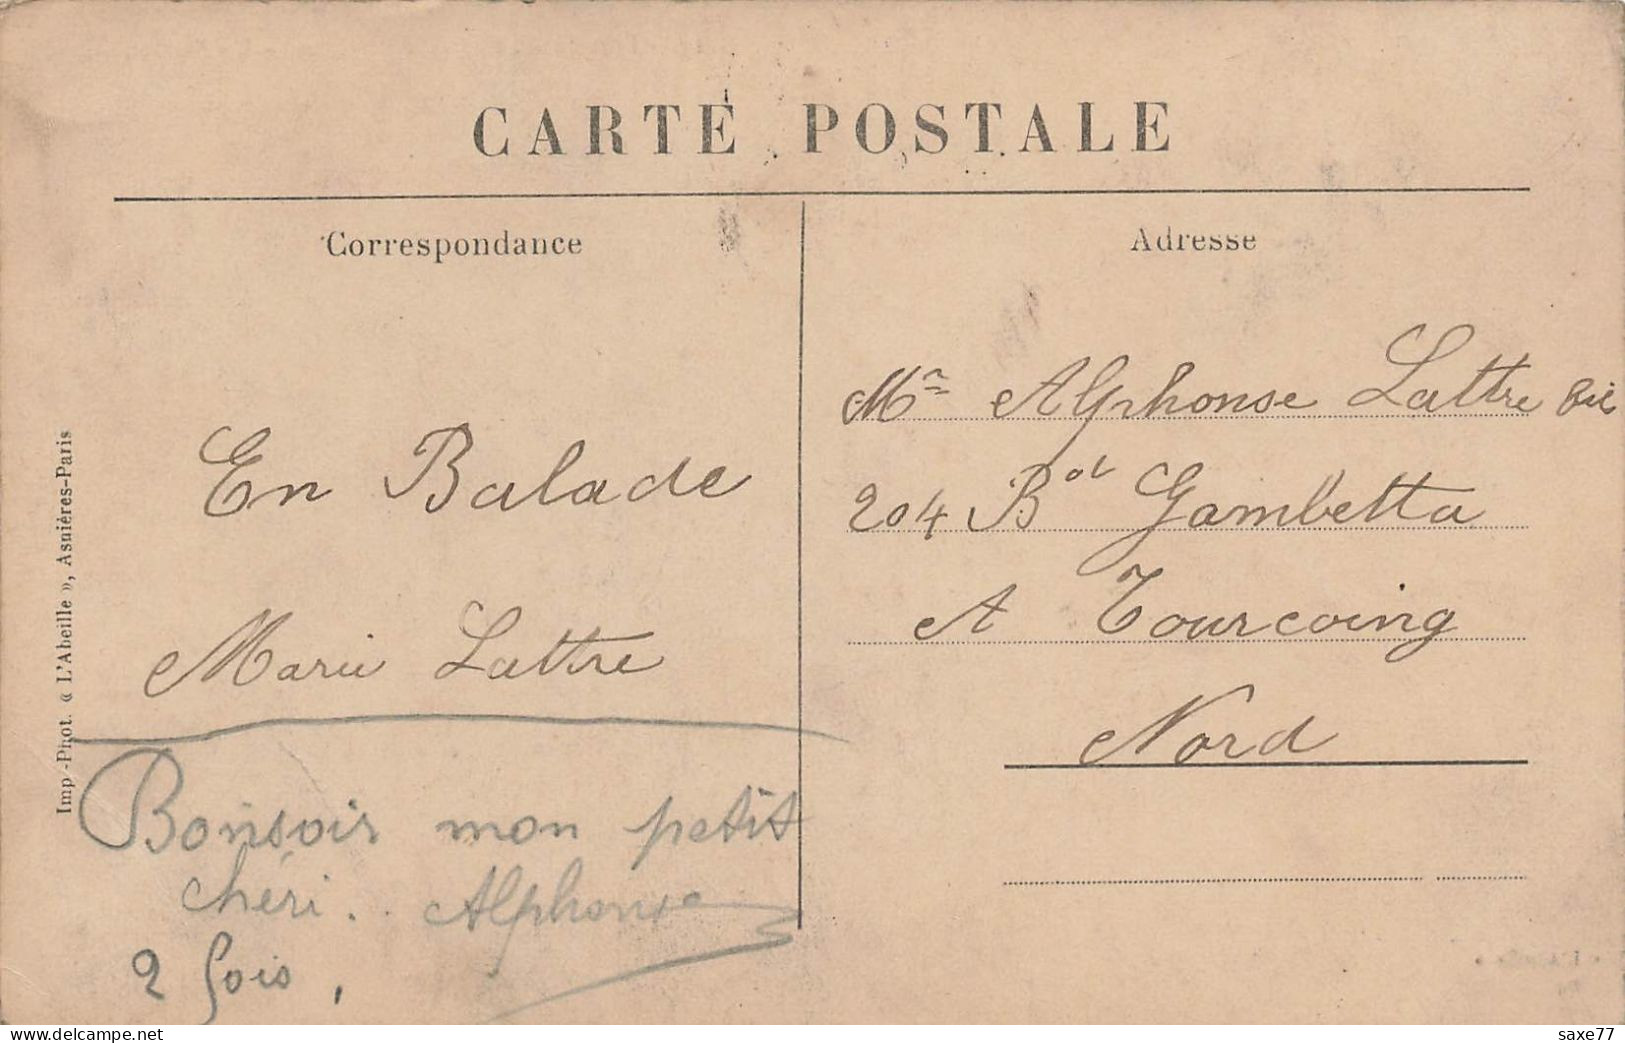 CARTE POSTALE
Correspondance
Adresse
En Balade
Marie Lattre
Bonsoir mon petit
chéri.. Alphonse
2 fois,
Mr Alphonse Lattre
204 Bd Gambetta
A Tourcoing
Nord
Imp.-Phot. « L'Abeille », Asnières-Paris
www.delcampe.net
saxe77